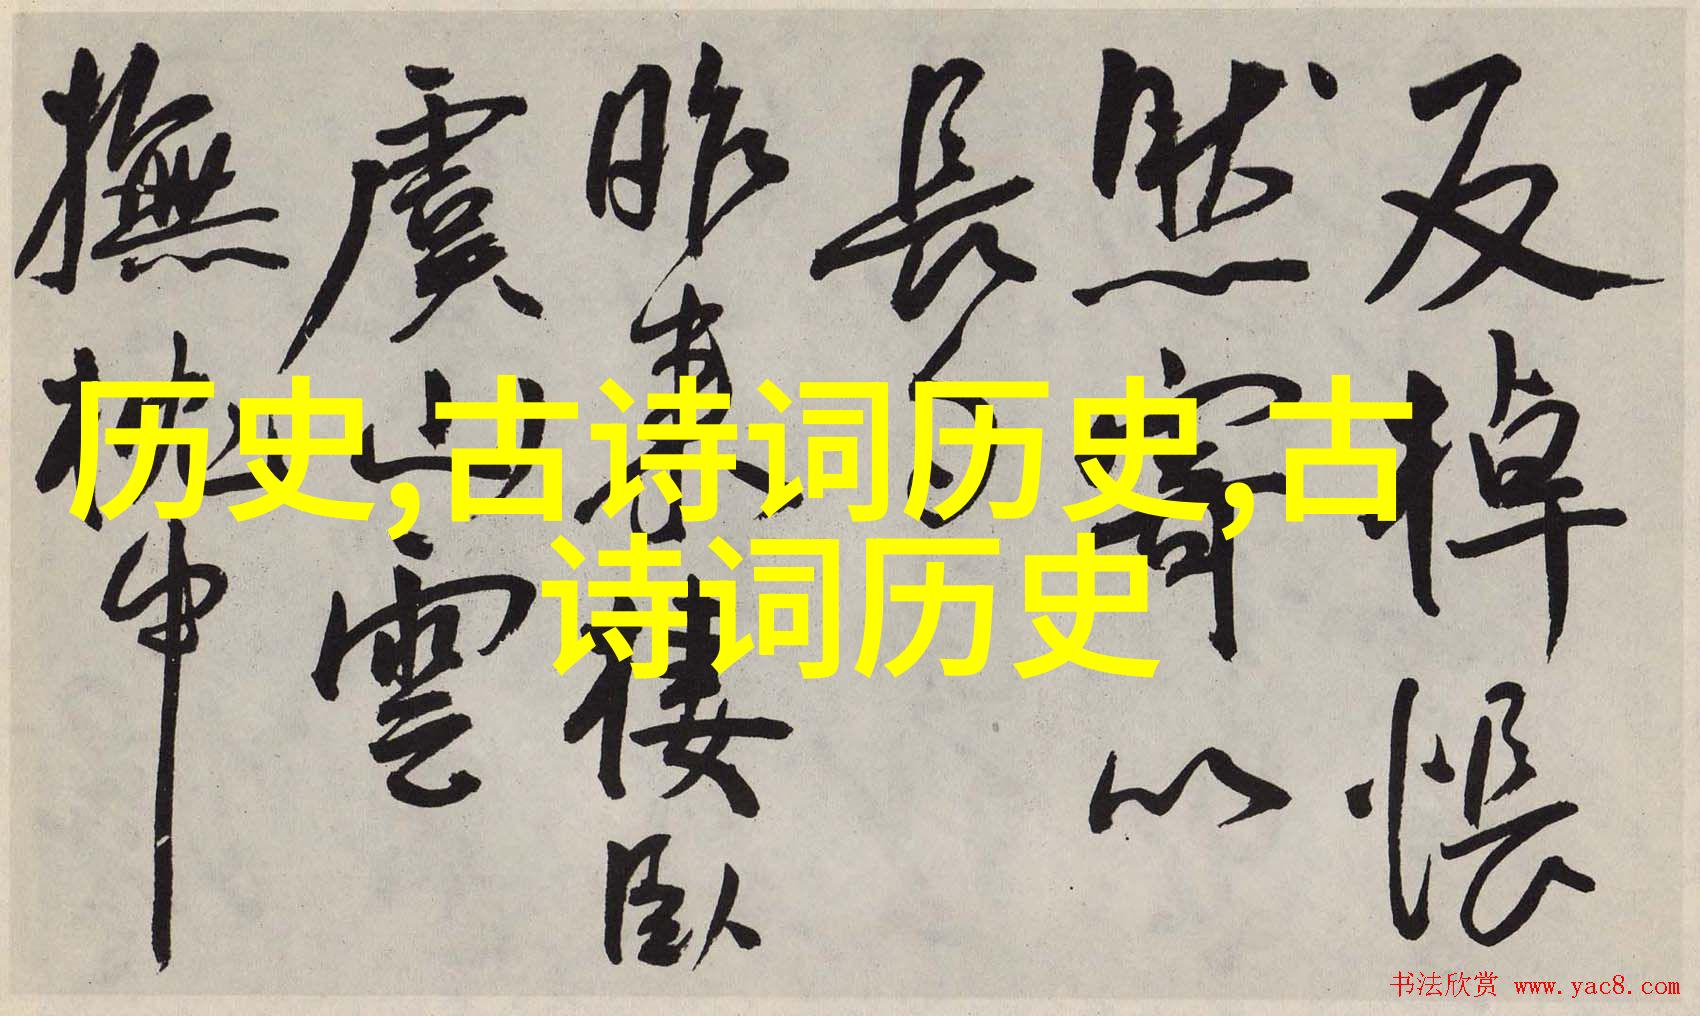 反棹悵
然寄以
長句
昨來棲臥
虞山雲
撫枕中
历史,古诗词历史,古
诗词历史
书法欣赏 www.yac8.com